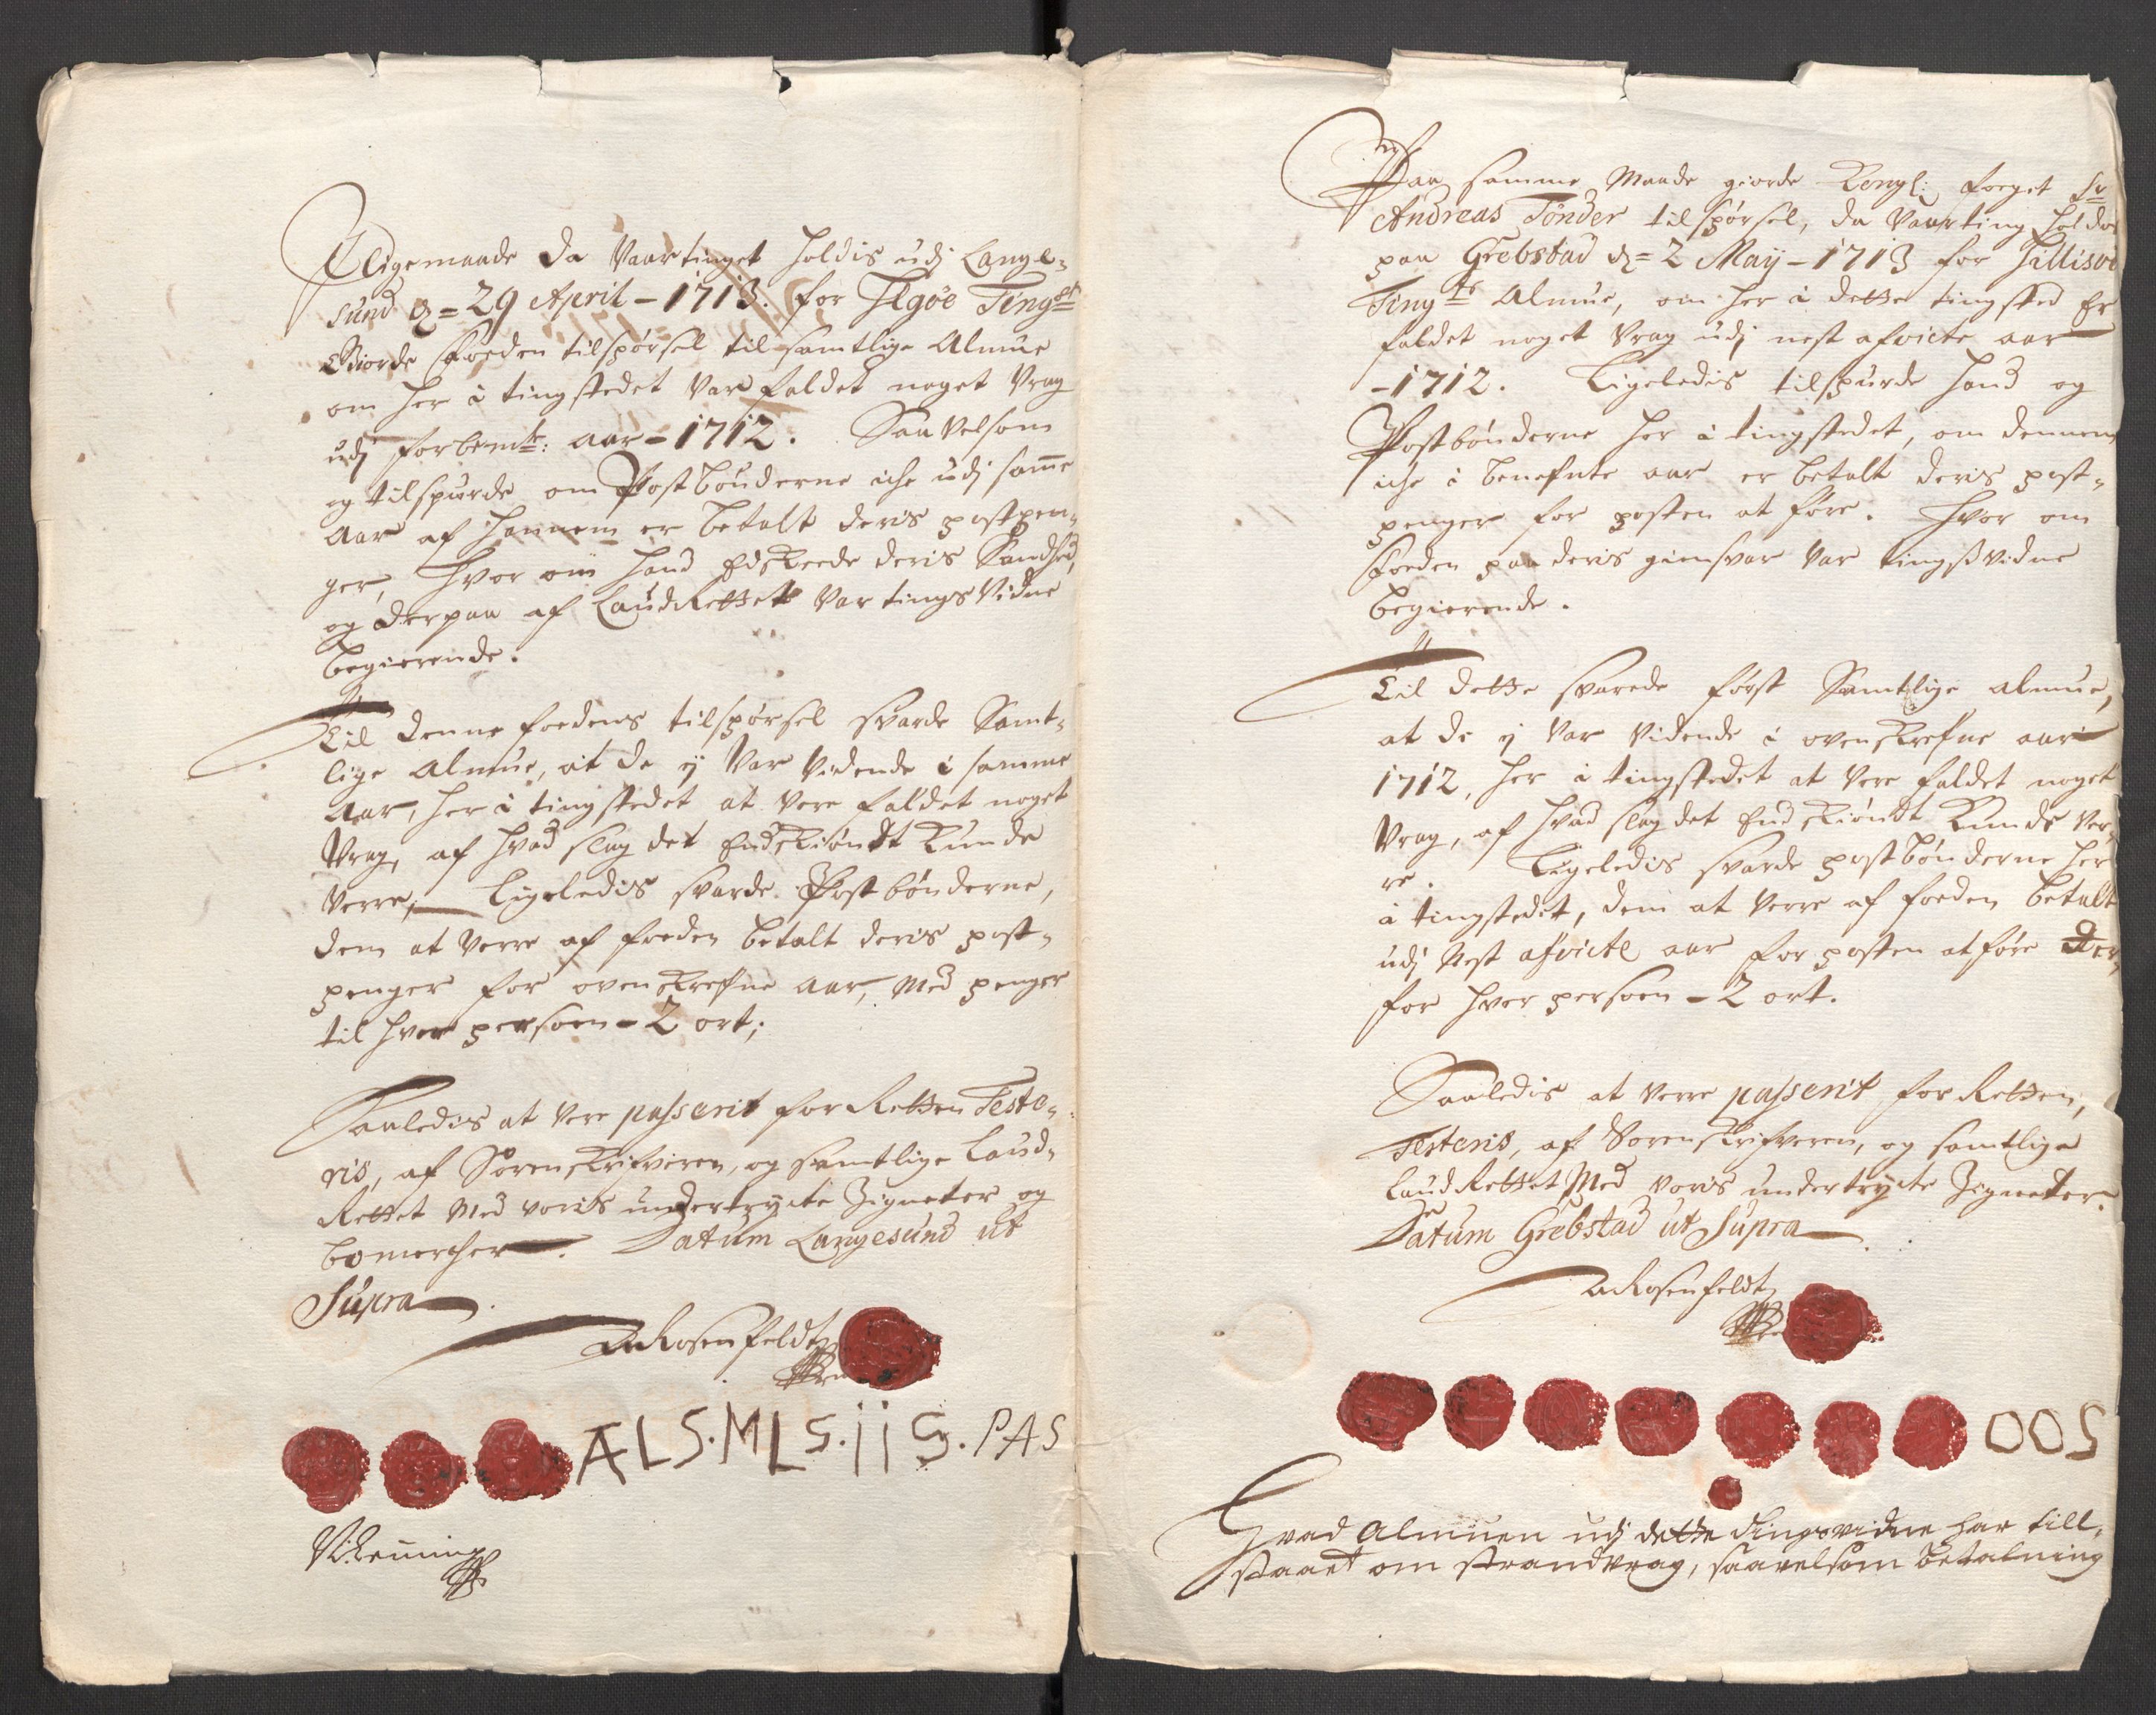 Ligemaade da Vaartinget holdis udj Lange-
sund d= 29 April - 1713. for Flgøe Tingst
Giorde Foeden tilspørsel til samtlige Almue
om her i tingstedet Var faldet noget Vrag
udj forbemte: aar - 1712. Saa Velsom
og tilspurde om Postbønderne iche udj samme
Aar af hannem er betalt deris postpen-
ger, Hvor om hand Edskeede deris Sandhed,
og derpaa af LaudRettet Var tings Vidne
begierende.
Til denne foedens tilspørsel svarde Samt-
lige Almue, at de ej Var Vidende i samme
Aar, her i tingstedet at Vere faldet noget
Vrag, af hvad slag det Endskiøndt Kunde
Verre, Ligeledis svarde Postbønderne,
dem at Verre af foeden betalt deris post-
penger for ovenskrefne Aar, Med penger
til hver persoen - 2 ort;
Saaledis at Vere passerit for Retten Teste-
ris, af Sorenskrifveren, og samtlige Laud-
Rettet Med voris undertrycte Zigneter og
bomercher. Datum Langesund ut
Supra.
ARosenfeldt
ALS. MLS. IIS. PAS
Paa samme Maade giorde Kongl: foeget Sr
Andreas Tønder tilspørsel, da Vaarting holdes
paa Grebstad d= 2 Maij - 1713 for
Tingts Almue, om her i dette tingsted Er
faldet noget Vrag udj nest afvicte aar
- 1712. Ligeledis tilspurde hand og
Postbønderne her i tingstedet, om dennem
iche i benefnte aar er betalt deris post-
penger for posten at føre. Hvor om
Foeden paa deris giensvar Var tingsvidne
begierende.
Til dette svarede først Samtlige almue,
at de ej Var Vidende i ovenskrefne aar
1712, her i tingstedet at Vere faldet noget
Vrag, af hvad slag det Endskiøndt Kunde Ver-
re. Ligeledis svarde postbønderne her
i tingstedet, dem at Verre af foeden betalt
udj Nest afvicte aar for posten at føre der-
for hver persoen - 2 ort.
Saaledis at Verre passerit for Retten,
Testeris, af Sorenskrifveren, og samtlige
LaudRettet Med voris undertrycte Zigneter.
Datum Grebstad ut Supra.
ARosenfeldt
OOS
Hvad Almuen udj dette tingsvidne har till-
staaet om strandvrag, saavelsom betalning